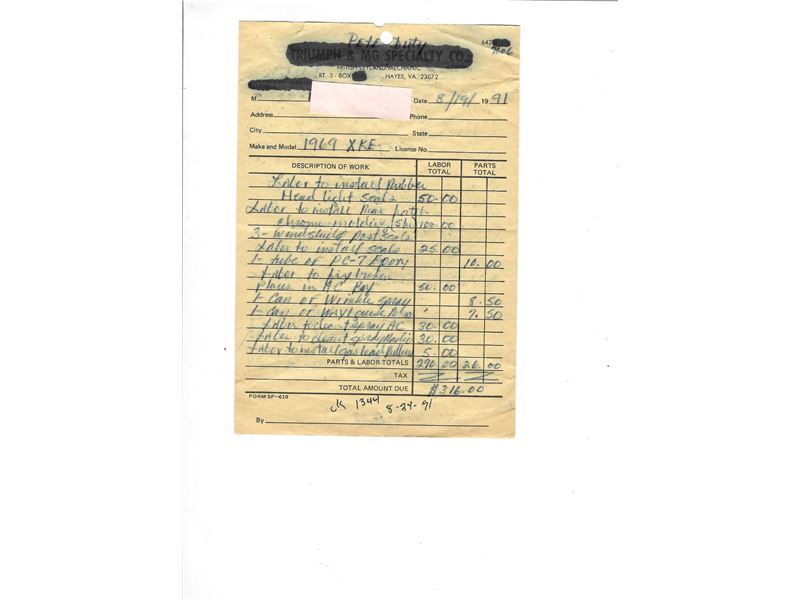 Pete Duty
TRIUMPH & MG SPECIALTY CO.
642
9606
BRITISH LEYLAND MECHANIC
RT. 3 - BOX HAYES, VA. 23072
M
Date 8/19/ 1991
Address
Phone
City
State
Make and Model 1969 XKE
License No.
DESCRIPTION OF WORK LABOR TOTAL PARTS TOTAL
Labor to install Rubber
Head light seals 50.00
Labor to install Rear hatch
chrome molding 100.00
3- windshield post seals
Labor to install seals 25.00
1- tube of PC-7 Epoxy 10.00
Labor to fix broken
places in AC Box 50.00
1- Can of Wrinkle spray 8.50
1- Can of 7.50
Labor to clean & spray AC 30.00
Labor to clean & spray Radio 30.00
Labor to install gas 5.00
PARTS & LABOR TOTALS 290.00 26.00
TAX
TOTAL AMOUNT DUE $316.00
FORM SF-610
CK 1344 8-24-91
By